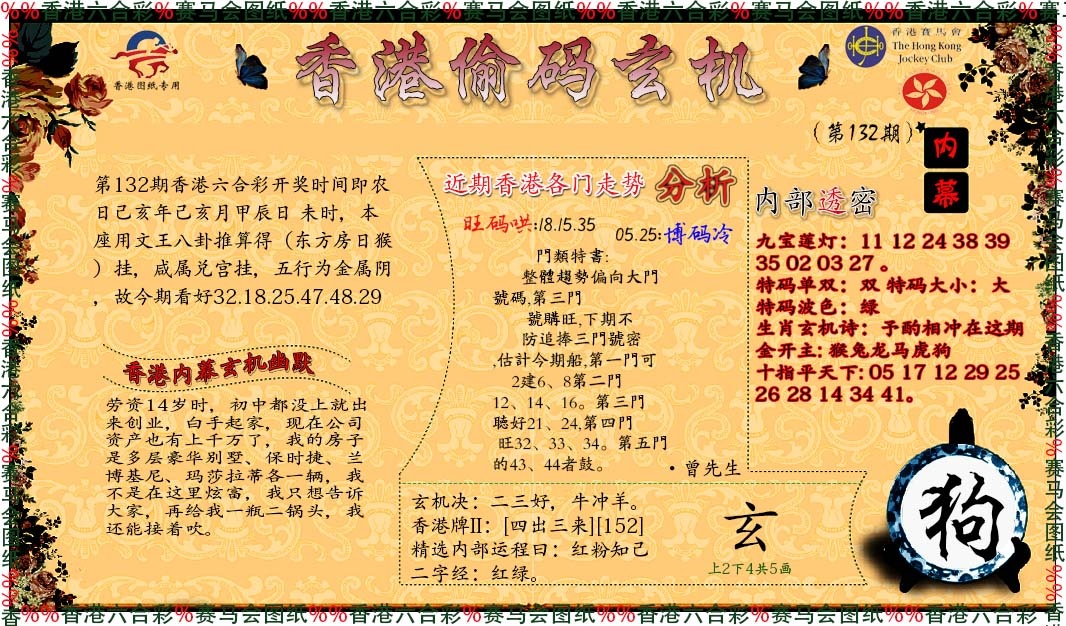 %%香港六合彩%赛马会图纸%%香港六合彩%赛马会图纸%%香港六合彩%赛马会图纸%%香港六合彩%赛
香港图纸专用
香港偷码玄机
香港賽馬會
The Hong Kong
Jockey Club
（第132期）
内
幕
第132期香港六合彩开奖时间即农
日己亥年己亥月甲辰日 未时，本
座用文王八卦推算得（东方房日猴
）挂，咸属兑宫挂，五行为金属阴
，故今期看好32.18.25.47.48.29
香港内幕玄机幽默
劳资14岁时，初中都没上就出
来创业，白手起家，现在公司
资产也有上千万了，我的房子
是多层豪华别墅、保时捷、兰
博基尼、玛莎拉蒂各一辆，我
不是在这里炫富，我只想告诉
大家，再给我一瓶二锅头，我
还能接着吹。
近期香港各门走势 分析
旺码哄:18.15.35
05.25:博码冷
門類特書:
整體趨勢偏向大門
號碼,第三門
號購旺,下期不
防追捧三門號密
,估計今期船,第一門可
2建6、8第二門
12、14、16。第三門
聽好21、24,第四門
旺32、33、34。第五門
的43、44者鼓。
·曾先生
玄机决：二三好，牛冲羊。
香港牌II：[四出三来][152]
精选内部运程曰：红粉知己
二字经：红绿。
玄
上2下4共5画
内部透密
九宝莲灯：11 12 24 38 39
35 02 03 27 。
特码单双：双 特码大小：大
特码波色：绿
生肖玄机诗：予酌相冲在这期
金开主: 猴兔龙马虎狗
十指平天下: 05 17 12 29 25
26 28 14 34 41。
狗
香%%香港六合彩%赛马会图纸%%香港六合彩%赛马会图纸%%香港六合彩%赛马会图纸%%香港六合彩